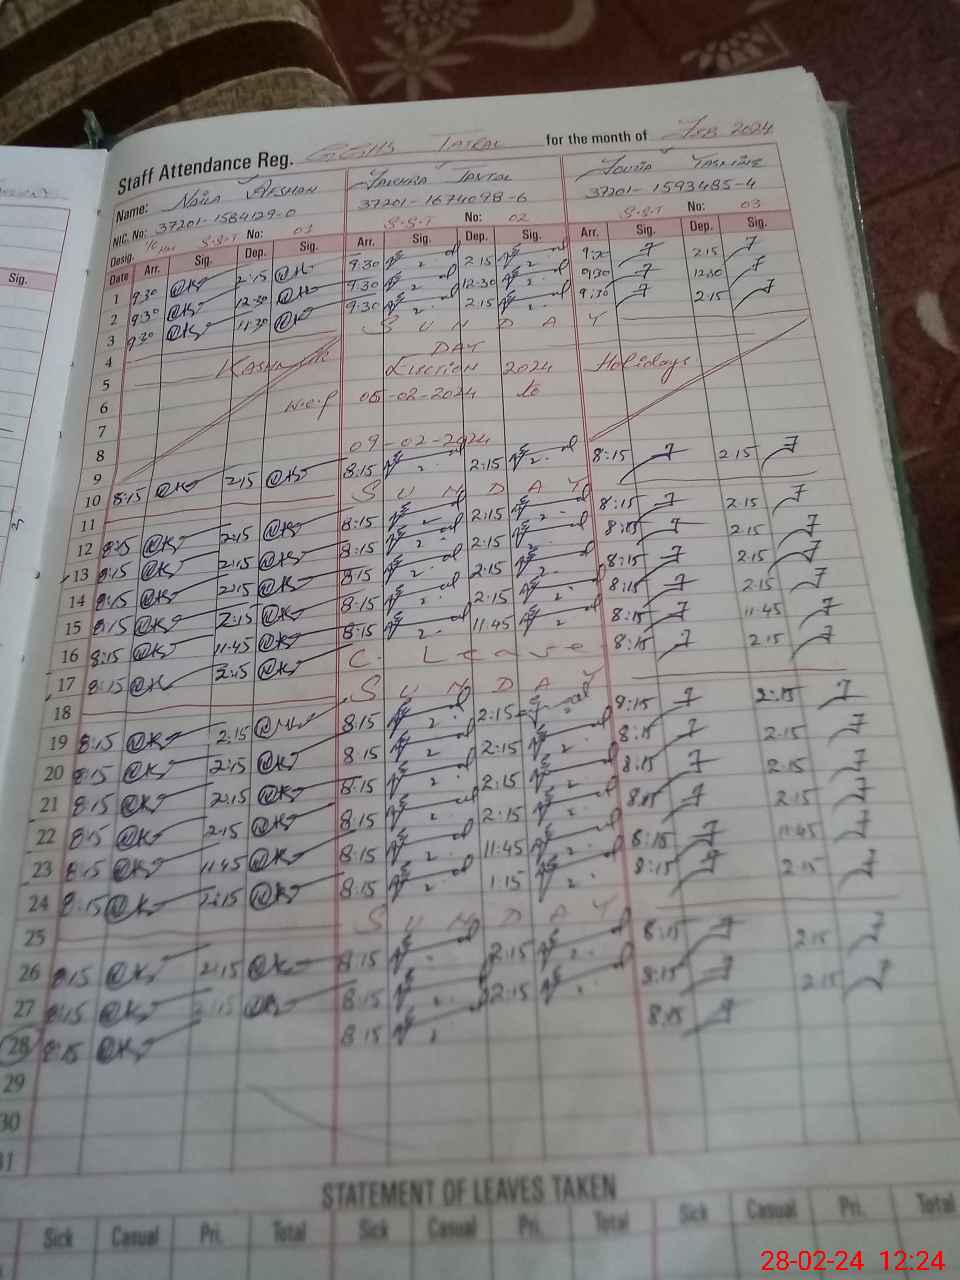 Staff Attendance Reg. GGHS TATRAL for the month of FEB 2024
Name: NAILA AFSHAN
NIC. No: 37201-1584129-0 37201-1674098-6 37201-1593485-4
Desig. S.S.T No: 01 S.S.T No: 02 S.S.T No: 03
Date Arr. Sig. Dep. Sig. Arr. Sig. Dep. Sig. Arr. Sig. Dep. Sig.
1 9:30 2:15 9:30 2:15 2:15
2 9:30 12:30 9:30 12:30 9:30 12:30
3 9:30 11:30 9:30 2:15 9:30 2:15
4 SUNDAY
5 KASHMIR DAY Election 2024 Holidays
6 w.e.f 05-02-2024 to
7
8 09-02-2024
9
10 8:15 2:15 8:15 2:15 8:15 2:15
11 SUNDAY
12 8:15 2:15 8:15 2:15 8:15 2:15
13 8:15 2:15 8:15 2:15 8:15 2:15
14 8:15 2:15 8:15 2:15 8:15 2:15
15 8:15 2:15 8:15 2:15 8:15 2:15
16 8:15 11:45 8:15 11:45 8:15 11:45
17 8:15 2:15 C. Leave 8:15 2:15
18 SUNDAY
19 8:15 2:15 8:15 2:15 2:15
20 8:15 2:15 8:15 2:15 8:15 2:15
21 8:15 2:15 8:15 2:15 8:15 2:15
22 8:15 2:15 8:15 2:15 8:15 2:15
23 8:15 11:45 8:15 11:45 8:15 11:45
24 8:15 2:15 8:15 1:15 8:15 2:15
25 SUNDAY
26 8:15 2:15 8:15 2:15 8:15 2:15
27 8:15 2:15 8:15 2:15 8:15 2:15
28 8:15 8:15 8:15
29
30
31
STATEMENT OF LEAVES TAKEN
Sick Casual Pri. Total Sick Casual Pri. Total Sick Casual Pri. Total
Sig.
28-02-24 12:24